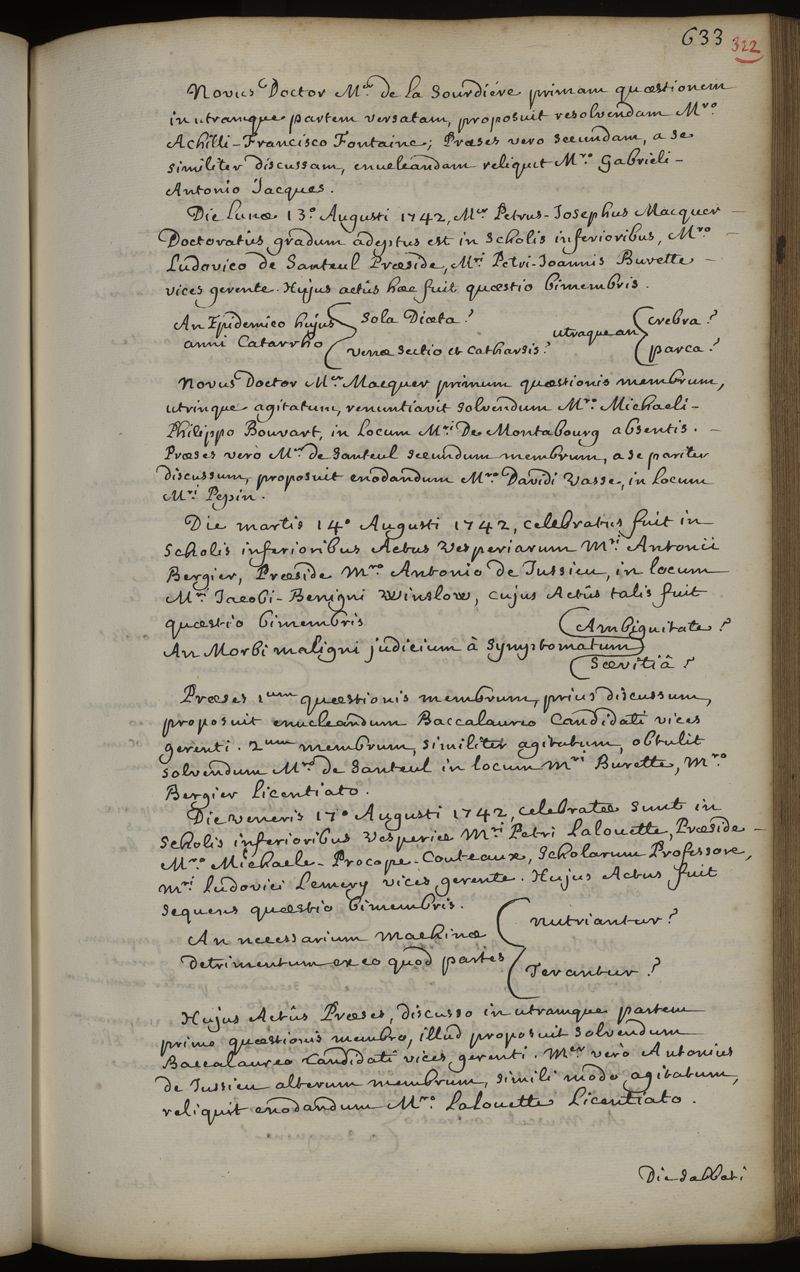 633
322
Novus Doctor M.er de la Sourdiére primam quæstionem
in utramque partem versatam, proposuit resolvendam M.ro
Achilli-Francisco Fontaine; Præses vero secundam, a se
similiter discussam, enucleandam reliquit M.ro Gabrieli-
Antonio Jacques.
Die Lunæ 13.° Augusti 1742, M.er Petrus-Josephus Macquer
Doctoratûs gradum adeptus est in Scholis inferioribus, M.ro
Ludovico de Santeul Præside, M.ri Petri-Joannis Burette
vices gerente. Hujus actûs hæc fuit quæstio bimembris.
An Epidemico hujus anni Catarrho { Sola Diæta? / venæ sectio et Catharsis? utraque an { Crebra? / parca?
Novus Doctor M.er Macquer primum quæstionis membrum,
utrinque agitatum, renuntiavit solvendum M.ro Michaeli-
Philippo Bouvart, in Locum M.ri De Montabourg absentis.
Præses vero M.er de Santeul secundum membrum, a se pariter
discussum, proposuit enodandum M.ro Davidi Vasse, in Locum
M.ri Pepin.
Die martis 14° Augusti 1742, celebratus fuit in
Scholis inferioribus Actus Vesperiarum M.ri Antonii
Bergier, Præside M.ro Antonio de Jussieu, in locum
M.ri Jacobi-Benigni Winslow, cujus Actûs talis fuit
quæstio bimembris
An Morbi maligni judicium à Symptomatum { Ambiguitate? / Sævitiâ?
Præses 1um quæstionis membrum, prius discussum,
proposuit enucleandum Baccalaureo Candidati vices
gerenti. 2um membrum, similiter agitatum, obtulit
solvendum M.ro de Santeul in locum M.ri Burette, M.ro
Bergier Licentiato.
Die veneris 17° Augusti 1742, celebratæ sunt in
Scholis inferioribus Vesperiæ M.ri Petri Lalouette, Præside
M.ro Michaele-Procope-Couteaux, Scholarum Professore,
M.ri Ludovici Lemery vices gerente. Hujus Actus fuit
sequens quæstio bimembris.
An necessarium Machinæ
detrimentum ex eo quod partes { nutriantur? / Terantur?
Hujus Actûs Præses, discusso in utramque partem
primo quæstionis membro, illud proposuit solvendum
Baccalaureo Candidati vices gerenti. M.er verò Antonius
de Jussieu alterum membrum, simili modo agitatum,
reliquit enodandum M.ro Lalouette Licentiato.
Die Sabbati